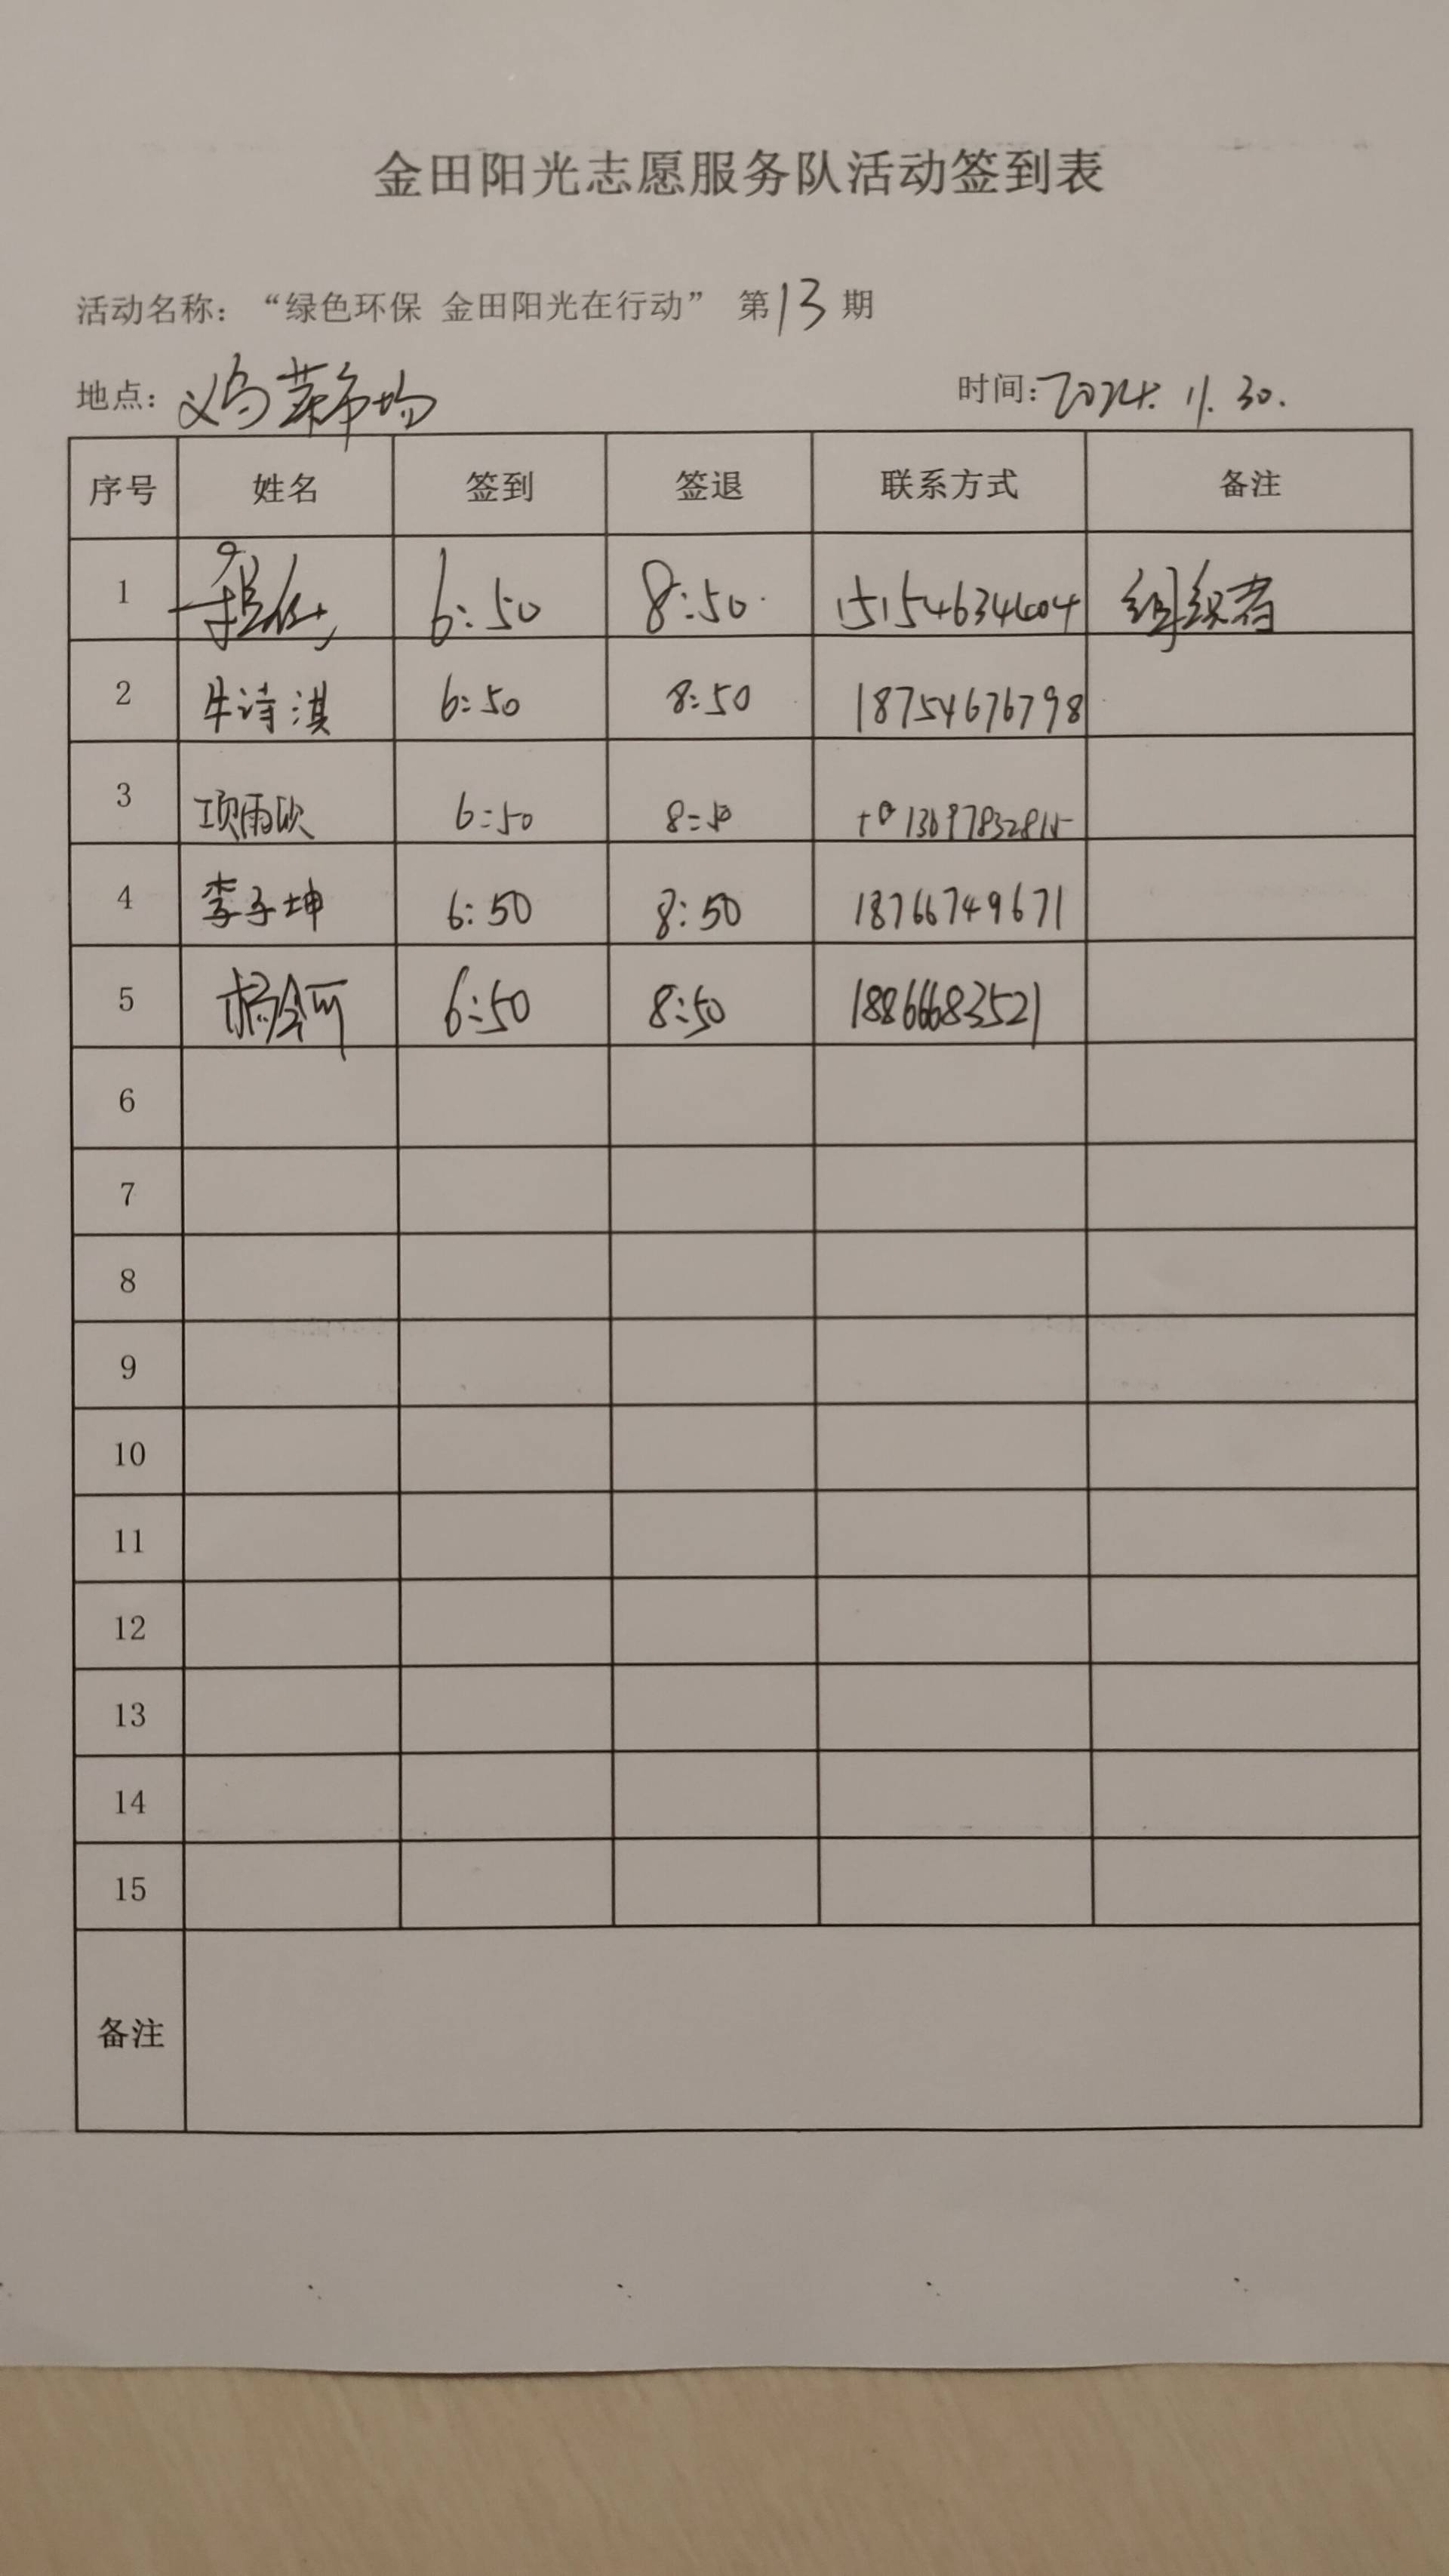 金田阳光志愿服务队活动签到表
活动名称：“绿色环保 金田阳光在行动” 第13期
地点：义乌菜市场 时间：2024.11.30.
序号 姓名 签到 签退 联系方式 备注
1 6:50 8:50 组织者
2 牛诗淇 6:50 8:50 18754676798
3 项雨欣 6:50 8:50
4 李子坤 6:50 8:50 18766749671
5 6:50 8:50 18866683521
6
7
8
9
10
11
12
13
14
15
备注